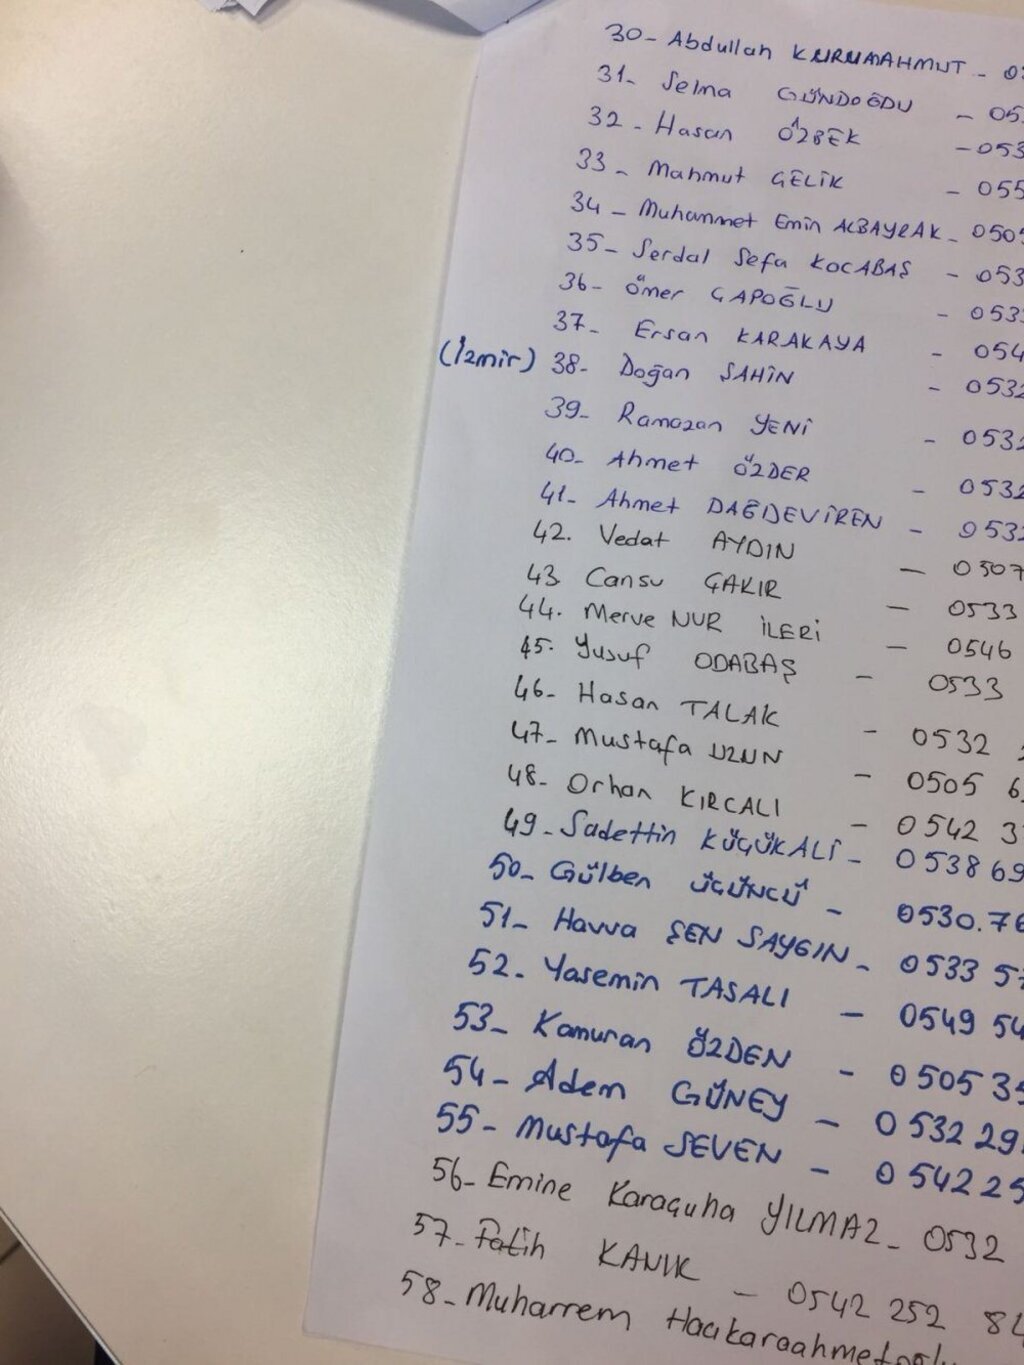 30- Abdullah KURUMAHMUT - 05
31- Selma GÜNDOĞDU - 053
32- Hasan ÖZBEK - 053
33- Mahmut ÇELİK - 055
34- Muhammet Emin ALBAYRAK - 0505
35- Serdal Sefa KOCABAŞ - 053
36- Ömer ÇAPOĞLU - 0533
37- Ersan KARAKAYA - 054
(İzmir) 38- Doğan ŞAHİN - 0532
39- Ramazan YENİ - 0532
40- Ahmet ÖZDER - 0532
41- Ahmet DAĞDEVİREN - 0532
42. Vedat AYDIN - 0507
43 Cansu ÇAKIR - 0533
44. Merve NUR İLERİ - 0546
45. Yusuf ODABAŞ - 0533
46- Hasan TALAK - 0532
47- Mustafa UZUN - 0505 6
48- Orhan KIRCALI - 0542 3
49- Sadettin KÜÇÜKALİ - 0538 69
50- Gülben ÜÇÜNCÜ - 0530.76
51- Havva ŞEN SAYGIN - 0533 57
52- Yasemin TASALI - 0549 54
53- Kamuran ÖZDEN - 0505 35
54- Adem GÜNEY - 0532 29
55- Mustafa SEVEN - 0542 25
56- Emine Karaçuha YILMAZ - 0532
57- Fatih KANIK - 0542 252 84
58- Muharrem